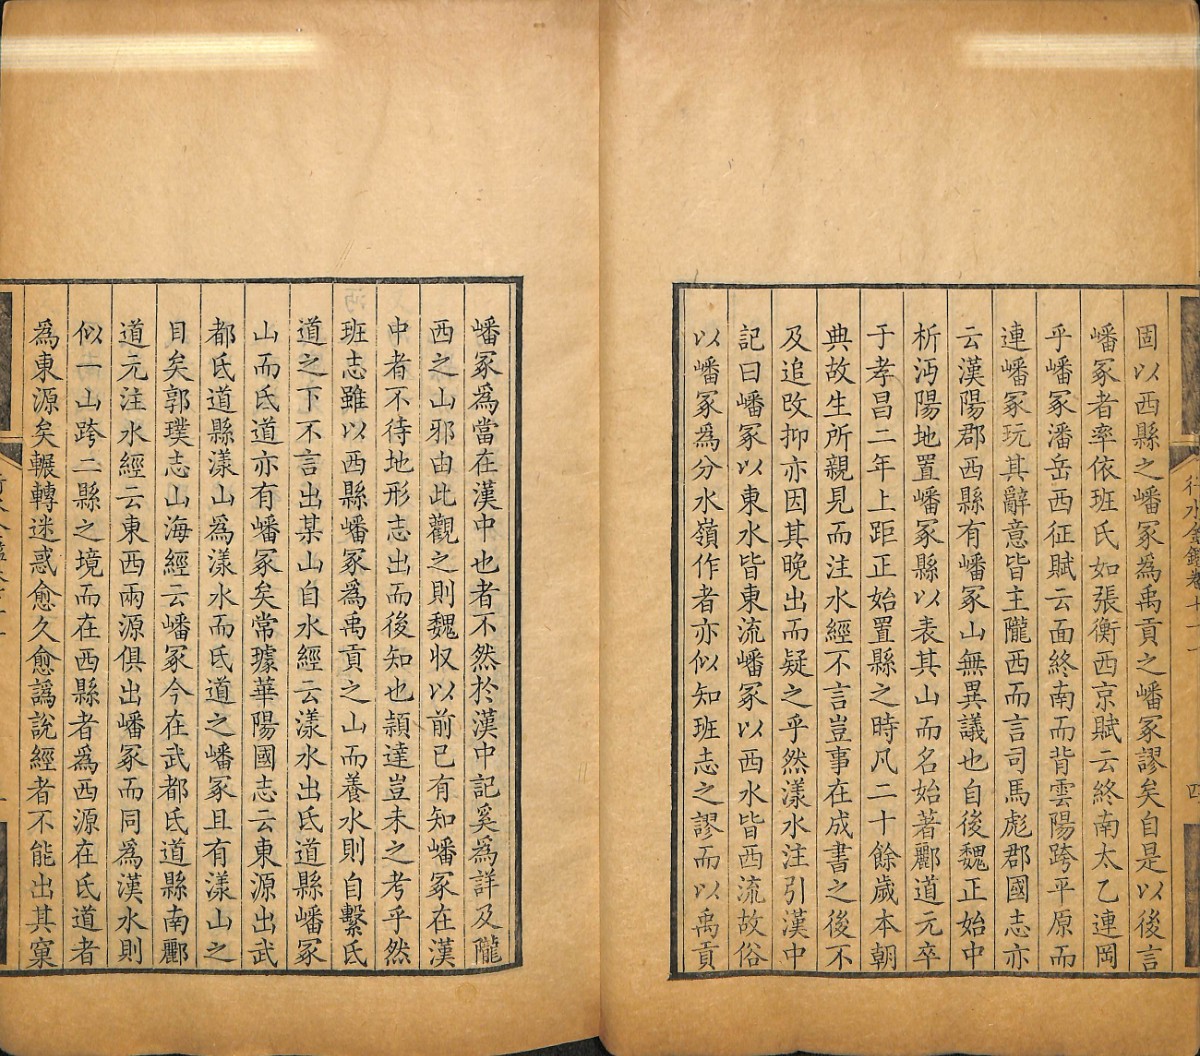 固以西縣之嶓冢爲禹貢之嶓冢謬矣自是以後言
嶓冢者率依班氏如張衡西京賦云終南太乙連岡
乎嶓冢潘岳西征賦云面終南而背雲陽跨平原而
連嶓冢玩其辭意皆主隴西而言司馬彪郡國志亦
云漢陽郡西縣有嶓冢山無異議也自後魏正始中
析沔陽地置嶓冢縣以表其山而名始著酈道元卒
于孝昌二年上距正始置縣之時凡二十餘歲本朝
典故生所親見而注水經不言豈事在成書之後不
及追改抑亦因其晚出而疑之乎然漾水注引漢中
記曰嶓冢以東水皆東流嶓冢以西水皆西流故俗
以嶓冢爲分水嶺作者亦似知班志之謬而以禹貢
嶓冢爲當在漢中也者不然於漢中記奚爲詳及隴
西之山邪由此觀之則魏収以前已有知嶓冢在漢
中者不待地形志出而後知也頴達豈未之考乎然
班志雖以西縣嶓冢爲禹貢之山而養水則自繫氐
道之下不言出某山自水經云漾水出氐道縣嶓冢
山而氐道亦有嶓冢矣常璩華陽國志云東源出武
都氐道縣漾山爲漾水而氐道之嶓冢且有漾山之
目矣郭璞志山海經云嶓冢今在武都氐道縣南酈
道元注水經云東西兩源俱出嶓冢而同爲漢水則
似一山跨二縣之境而在西縣者爲西源在氐道者
爲東源矣輾轉迷惑愈久愈譌說經者不能出其窠